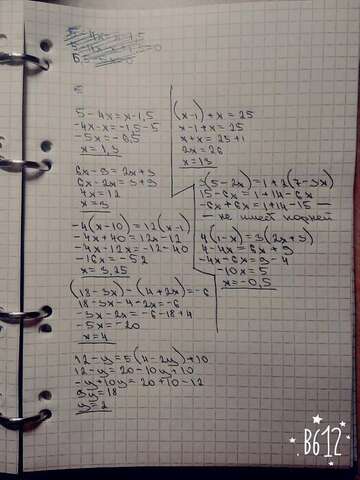 5 - 4x = x - 1,5
-4x - x = -1,5 - 5
-5x = -6,5
x = 1,3
6x - 3 = 2x + 9
6x - 2x = 3 + 9
4x = 12
x = 3
-4(x - 10) = 12(x - 1)
-4x + 40 = 12x - 12
-4x - 12x = -12 - 40
-16x = -52
x = 3,25
(18 - 3x) - (4 + 2x) = -6
18 - 3x - 4 - 2x = -6
-3x - 2x = -6 - 18 + 4
-5x = -20
x = 4
12 - y = 5(4 - 2y) + 10
12 - y = 20 - 10y + 10
-y + 10y = 20 + 10 - 12
9y = 18
y = 2
(x - 1) + x = 25
x - 1 + x = 25
x + x = 25 + 1
2x = 26
x = 13
3(5 - 2x) = 1 + 2(7 - 3x)
15 - 6x = 1 + 14 - 6x
-6x + 6x = 1 + 14 - 15 —
— не имеет корней
4(1 - x) = 3(2x + 3)
4 - 4x = 6x + 9
-4x - 6x = 9 - 4
-10x = 5
x = -0,5
B612